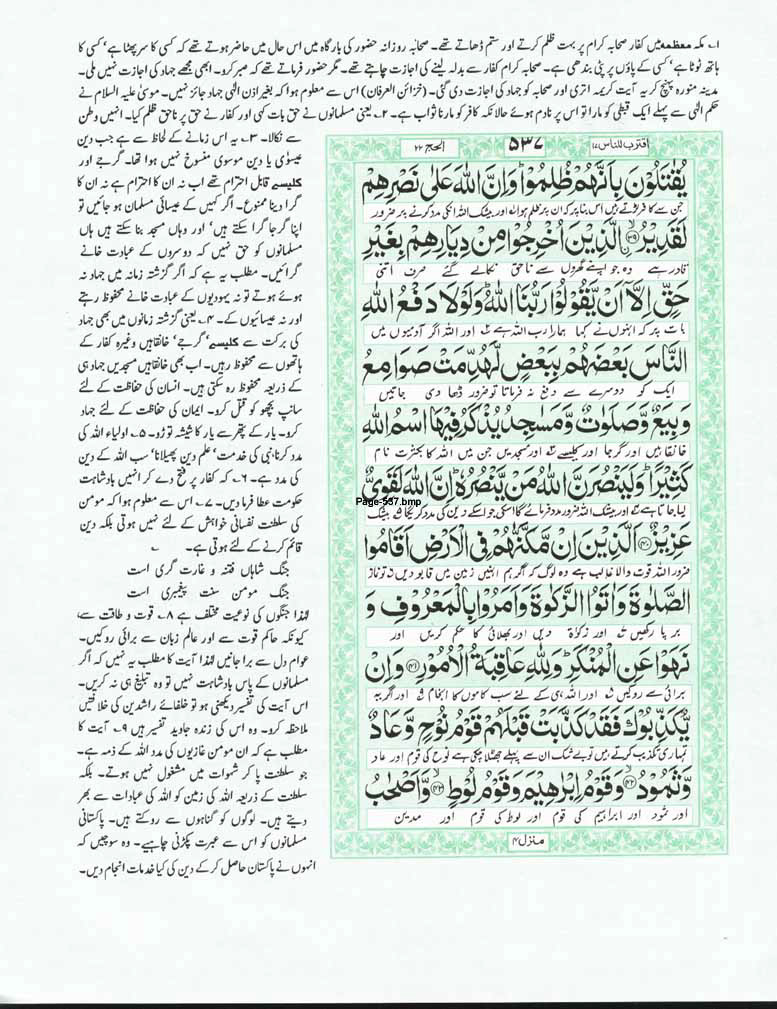 ۱۔ مکہ معظمہ میں کفار صحابہ کرام پر بہت ظلم کرتے اور ستم ڈھاتے تھے۔ صحابہ روزانہ حضور کی بارگاہ میں اس حال میں حاضر ہوتے تھے کہ کسی کا سر پھٹا ہے، کسی کا
ہاتھ ٹوٹا ہے، کسی کے پاؤں پر پٹی بندھی ہے۔ صحابہ کرام کفار سے بدلہ لینے کی اجازت چاہتے تھے۔ مگر حضور فرماتے تھے کہ صبر کرو۔ ابھی مجھے جہاد کی اجازت نہیں ملی۔
مدینہ منورہ پہنچ کر یہ آیت کریمہ اتری اور صحابہ کو جہاد کی اجازت دی گئی۔ (خزائن العرفان) اس سے معلوم ہوا کہ بغیر اذن الٰہی جہاد جائز نہیں۔ موسیٰ علیہ السلام نے
حکم الٰہی سے پہلے ایک قبطی کو مارا تو اس پر نادم ہوئے حالانکہ کافر کو مارنا ثواب ہے۔ ۲۔ یعنی مسلمانوں نے حق بات کہی اور کفار نے حق پر ناحق ظلم کیا۔ انہیں وطن
سے نکالا۔ ۳۔ یہ اس زمانے کے لحاظ سے ہے جب دین
عیسوی یا دین موسوی منسوخ نہیں ہوا تھا۔ گرجے اور
کلیسے قابل احترام تھے اب نہ ان کا احترام ہے نہ ان کا
گرا دینا ممنوع۔ اگر کہیں کے عیسائی مسلمان ہو جائیں تو
اپنا گرجا گرا سکتے ہیں، اور وہاں مسجد بنا سکتے ہیں ہاں
مسلمانوں کو حق نہیں کہ دوسروں کے عبادت خانے
گرائیں۔ مطلب یہ ہے کہ اگر گزشتہ زمانہ میں جہاد نہ
ہوئے ہوتے تو نہ یہودیوں کے عبادت خانے محفوظ رہتے
اور نہ عیسائیوں کے۔ ۴۔ یعنی گزشتہ زمانوں میں بھی جہاد
کی برکت سے کلیسے، گرجے، خانقاہیں وغیرہ کفار کے
ہاتھوں سے محفوظ رہیں۔ اب بھی خانقاہیں مسجدیں جہاد ہی
کے ذریعہ محفوظ رہ سکتی ہیں۔ انسان کی حفاظت کے لئے
سانپ بچھو کو قتل کرو۔ ایمان کی حفاظت کے لئے جہاد
کرو۔ یار کے پتھر سے یار کا شیشہ توڑو۔ ۵۔ اولیاء اللہ کی
مدد کرنا، نبی کی خدمت، علم دین پھیلانا، سب اللہ کے دین
کی مدد ہے۔ ۶۔ کہ کفار پر فتح دے کر انہیں بادشاہت
حکومت عطا فرما دیں۔ ۷۔ اس سے معلوم ہوا کہ مومن
کی سلطنت نفسانی خواہش کے لئے نہیں ہوتی بلکہ دین
قائم کرنے کے لئے ہوتی ہے۔
جنگ شاہاں فتنہ و غارت گری است
جنگ مومن سنت پیغمبری است
لہٰذا جنگوں کی نوعیت مختلف ہے ۸۔ قوت و طاقت سے،
کیونکہ حاکم قوت سے اور عالم زبان سے برائی روکیں۔
عوام دل سے برا جانیں لہٰذا آیت کا مطلب یہ نہیں کہ اگر
مسلمانوں کے پاس بادشاہت نہیں تو وہ تبلیغ ہی نہ کریں۔
اس آیت کی تفسیر دیکھنی ہو تو خلفائے راشدین کی خلافتیں
ملاحظہ کرو۔ وہ اس کی زندہ جاوید تفسیر ہیں ۹۔ آیت کا
مطلب ہے کہ ان مومن غازیوں کی مدد اللہ کے ذمہ ہے۔
جو سلطنت پا کر شہوات میں مشغول نہیں ہوتے۔ بلکہ
سلطنت کے ذریعہ اللہ کی زمین کو اللہ کی عبادات سے بھر
دیتے ہیں۔ لوگوں کو گناہوں سے روکتے ہیں۔ پاکستانی
مسلمانوں کو اس سے عبرت پکڑنی چاہیے۔ وہ سوچیں کہ
انہوں نے پاکستان حاصل کر کے دین کی کیا خدمات انجام دیں۔
اقترب للناس ۱۷ ۵۳۷ الحج ۲۲
يُقٰتَلُوْنَ بِاَنَّهُمْ ظُلِمُوْا ؕ وَاِنَّ اللّٰهَ عَلٰى نَصْرِهِمْ
جن سے کافر لڑتے ہیں اس بنا پر کہ ان پر ظلم ہوا ۱ اور بیشک اللہ انکی مدد کرنے پر ضرور
لَقَدِيْرُۨ ۙ﴿۳۹﴾ الَّذِيْنَ اُخْرِجُوْا مِنْ دِيَارِهِمْ بِغَيْرِ
قادر ہے وہ جو اپنے گھروں سے ناحق نکالے گئے صرف اتنی
حَقٍّ اِلَّاۤ اَنْ يَّقُوْلُوْا رَبُّنَا اللّٰهُ ؕ وَلَوْلَا دَفْعُ اللّٰهِ
بات پر کہ انہوں نے کہا ہمارا رب اللہ ہے ۲ اور اللہ اگر آدمیوں میں
النَّاسَ بَعْضَهُمْ بِبَعْضٍ لَّهُدِّمَتْ صَوَامِعُ
ایک کو دوسرے سے دفع نہ فرماتا تو ضرور ڈھا دی جاتیں
وَبِيَعٌ وَّصَلَوٰتٌ وَّمَسٰجِدُ يُذْكَرُ فِيْهَا اسْمُ اللّٰهِ
خانقاہیں اور گرجا اور کلیسے ۳ اور مسجدیں جن میں اللہ کا بکثرت نام
كَثِيْرًا ؕ وَلَيَنْصُرَنَّ اللّٰهُ مَنْ يَّنْصُرُهٗ ؕ اِنَّ اللّٰهَ لَقَوِىٌّ
Page-537.bmp
لیا جاتا ہے ۴ اور بیشک اللہ ضرور مدد فرمائے گا اسکی جو اسکے دین کی مدد کریگا ۵ بیشک
عَزِيْزٌ ﴿۴۰﴾ اَلَّذِيْنَ اِنْ مَّكَّنّٰهُمْ فِى الْاَرْضِ اَقَامُوا
ضرور اللہ قوت والا غالب ہے وہ لوگ کہ اگر ہم انہیں زمین میں قابو دیں ۶ تو نماز
الصَّلٰوةَ وَاٰتَوُا الزَّكٰوةَ وَاَمَرُوْا بِالْمَعْرُوْفِ وَ
برپا رکھیں ۷ اور زکوٰۃ دیں اور بھلائی کا حکم کریں اور
نَهَوْا عَنِ الْمُنْكَرِ ؕ وَلِلّٰهِ عَاقِبَةُ الْاُمُوْرِ ﴿۴۱﴾ وَاِنْ
برائی سے روکیں ۸ اور اللہ ہی کے لئے سب کاموں کا انجام ۹ اور اگر یہ
يُّكَذِّبُوْكَ فَقَدْ كَذَّبَتْ قَبْلَهُمْ قَوْمُ نُوْحٍ وَّعَادٌ
تمہاری تکذیب کرتے ہیں تو بے شک ان سے پہلے جھٹلا چکی ہے نوح کی قوم اور عاد
وَّثَمُوْدُ ﴿۴۲﴾ وَقَوْمُ اِبْرٰهِيْمَ وَقَوْمُ لُوْطٍ ﴿۴۳﴾ وَّاَصْحٰبُ
اور ثمود اور ابراہیم کی قوم اور لوط کی قوم اور مدین
منزل ۴